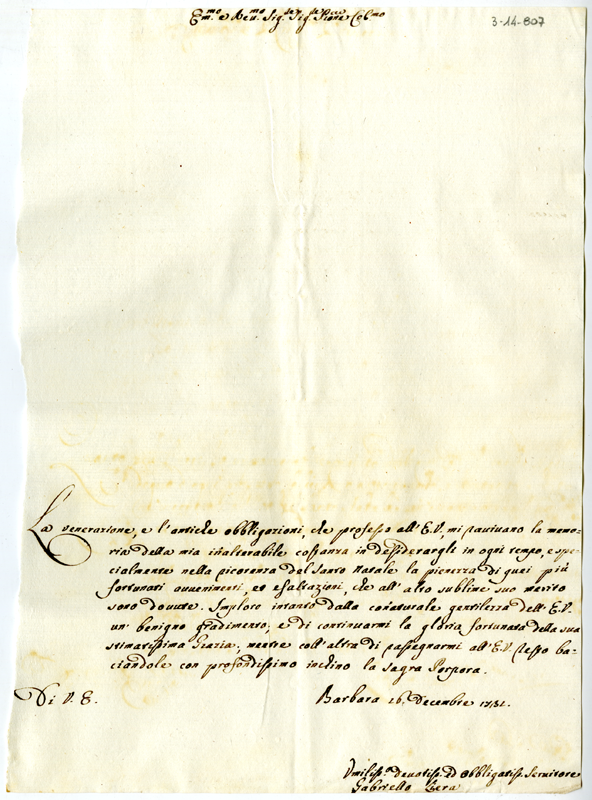 3-14-807
Em.mo e Reu.mo Sig.r Sig.r Pa͞ne Col.mo
La venerazione, e l'antiche obbligazioni, che professo all'E.V., mi rauiuano la memo=
ria della mia inalterabile costanza in dessiderargle in ogni tempo, e spe=
cialmente nella ricorenza del Santo Natale la pienezza di quei più
fortunati auuenimenti, et esaltazioni, che all'alto sublime suo merito
sono douute. Imploro intanto dalla conaturale gentilezza dell'E.V.
un' benigno gradimento, e di continuarmi la gloria fortunata della sua
stimatissima Grazia, mentre coll'altra di rassegnarmi all'E.V. resto ba=
ciandole con profondissimo inchino la Sagra Porpora.
Di V. E.
Barbara 16. Decembre 1731.
Vmiliss.o deuotiss. ed Obbligatiss. Seruitore
Gabriello